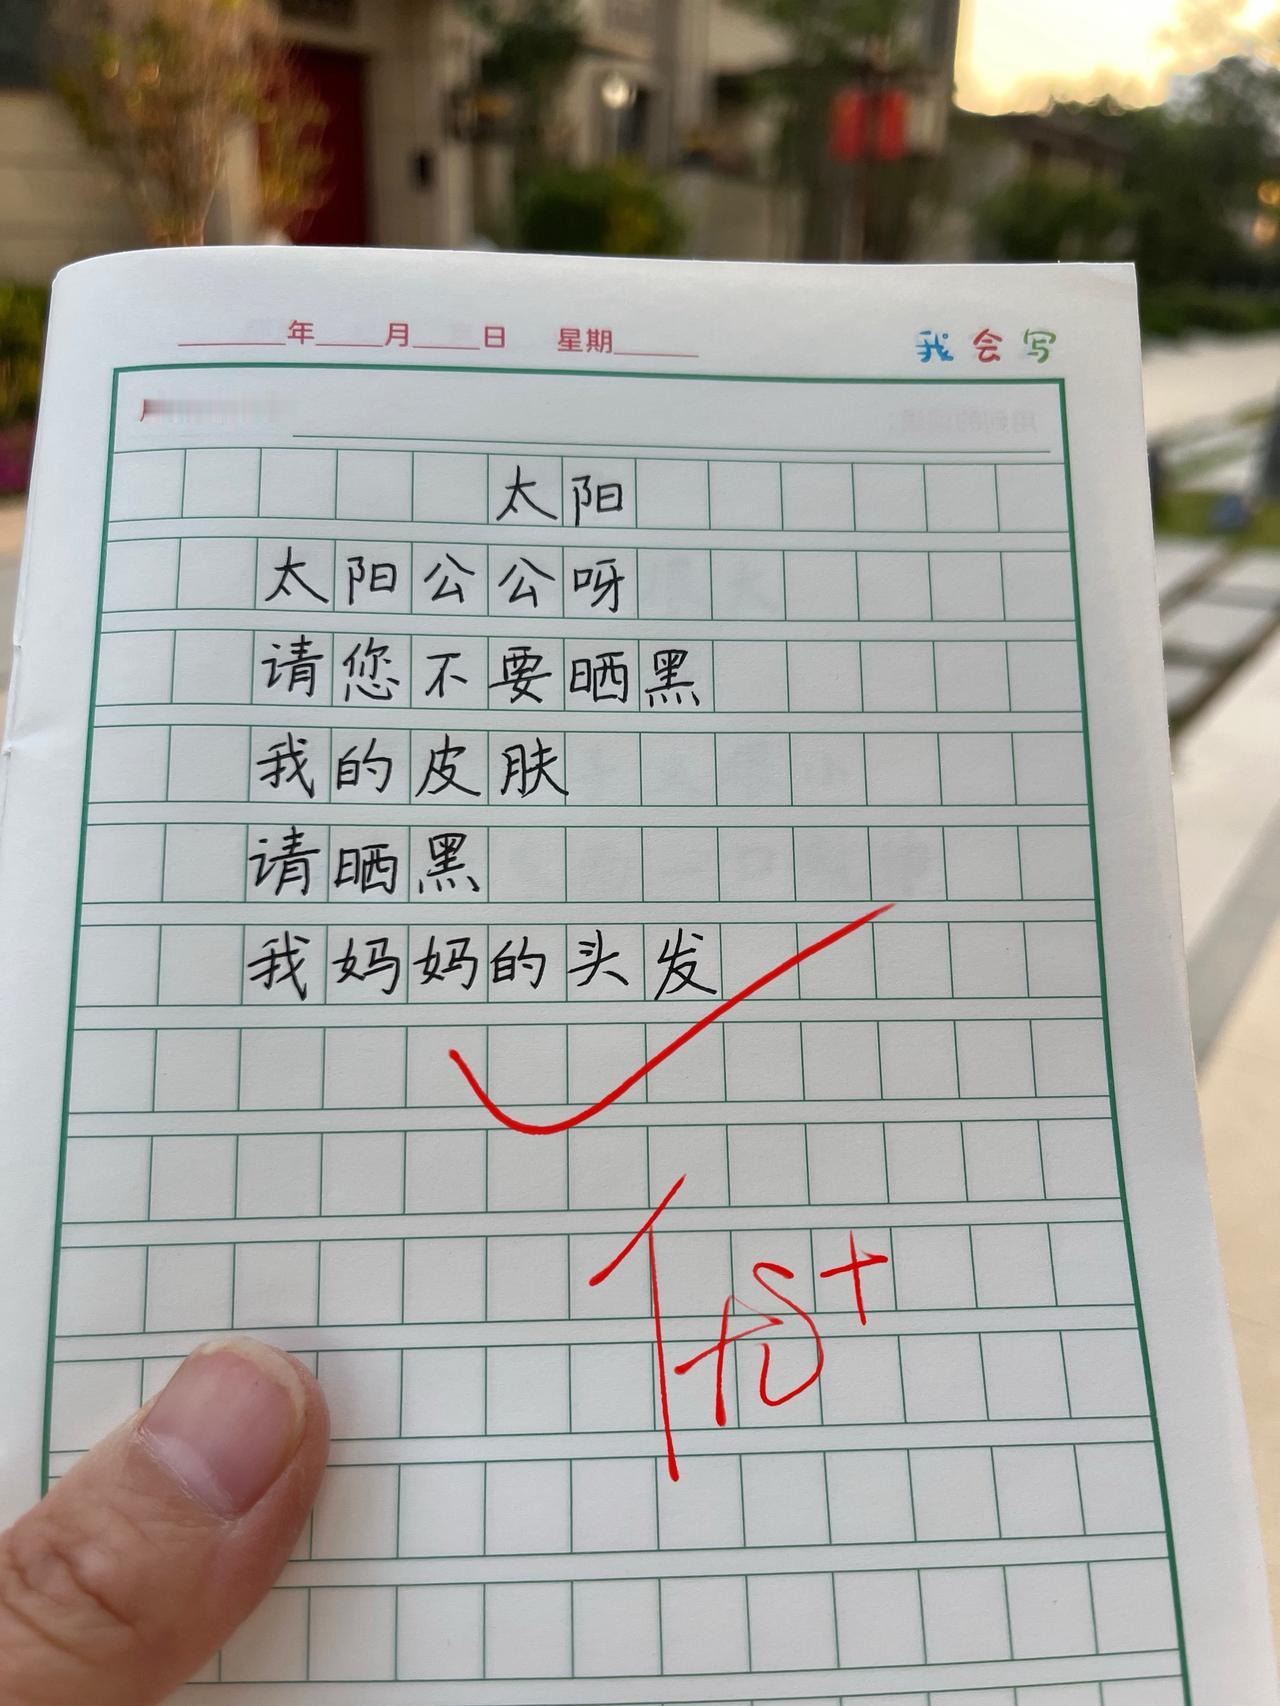 年 月 日 星期
我会写
太阳
太阳公公呀
请您不要晒黑
我的皮肤
请晒黑
我妈妈的头发
优+